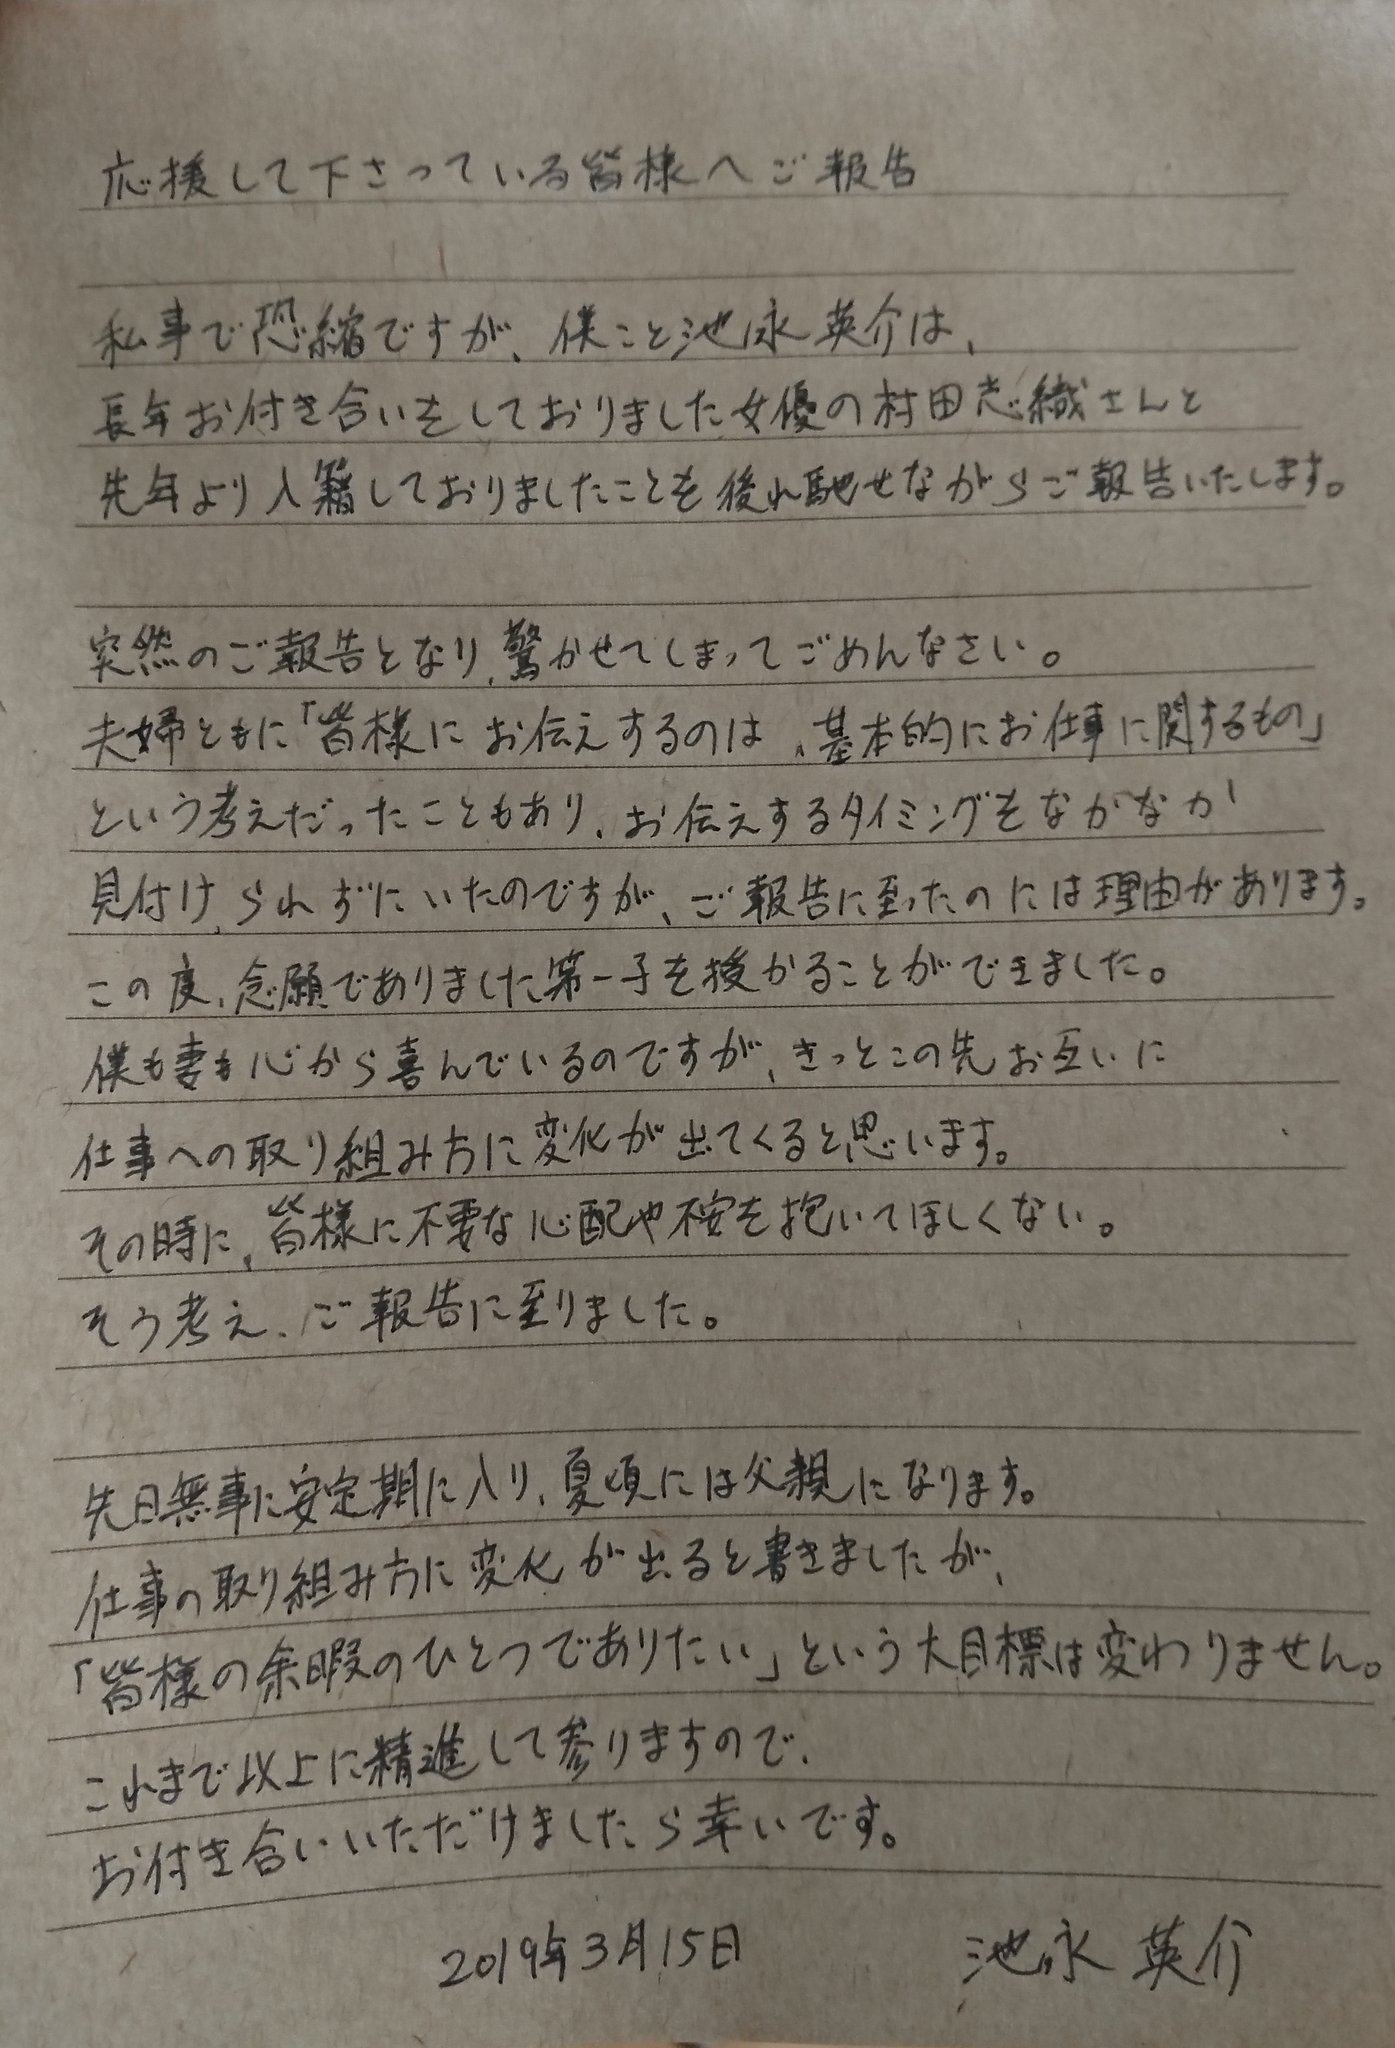 応援して下さっている皆様へご報告
私事で恐縮ですが、僕こと池永英介は、
長年お付き合いをしておりました女優の村田志織さんと
先年より入籍しておりましたことを後れ馳せながらご報告いたします。
突然のご報告となり、驚かせてしまってごめんなさい。
夫婦ともに「皆様にお伝えするのは、基本的にお仕事に関するもの」
という考えだったこともあり、お伝えするタイミングをなかなか
見付けられずにいたのですが、ご報告に至ったのには理由があります。
この度、念願でありました第一子を授かることができました。
僕も妻も心から喜んでいるのですが、きっとこの先お互いに
仕事への取り組み方に変化が出てくると思います。
その時に、皆様に不要な心配や不安を抱いてほしくない。
そう考え、ご報告に至りました。
先日無事に安定期に入り、夏頃には父親になります。
仕事の取り組み方に変化が出ると書きましたが、
「皆様の余暇のひとつでありたい」という大目標は変わりません。
これまで以上に精進して参りますので、
お付き合いいただけましたら幸いです。
2019年3月15日 池永英介